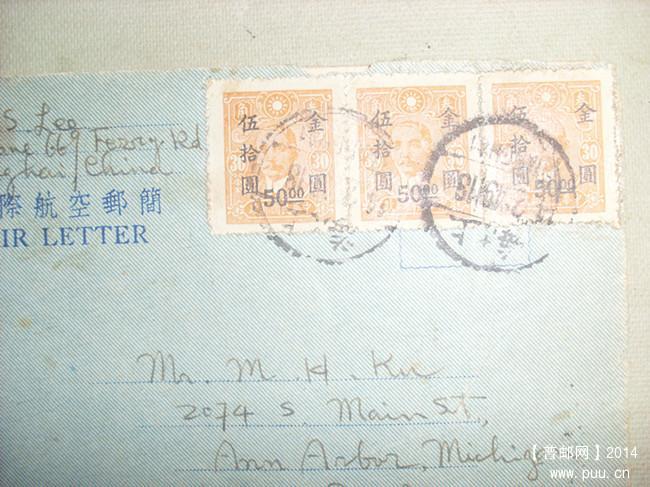 S Lee
669 Ferry Rd
China
際航空郵簡
IR LETTER
金 伍拾圓 圓
30 30
5000
金 伍拾圓 圓
30 30
5000
金 伍拾圓 圓
30
5000
上海
Mr. M. H. Ku
2074 S. Main St.,
Ann Arbor, Michig
【普邮网】2014
www.puu.cn